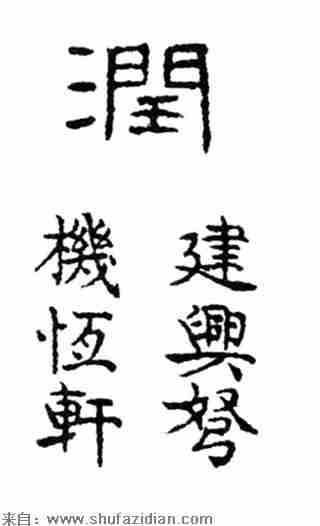 潤
建興弩
機恆軒
来自：www.shufazidian.com